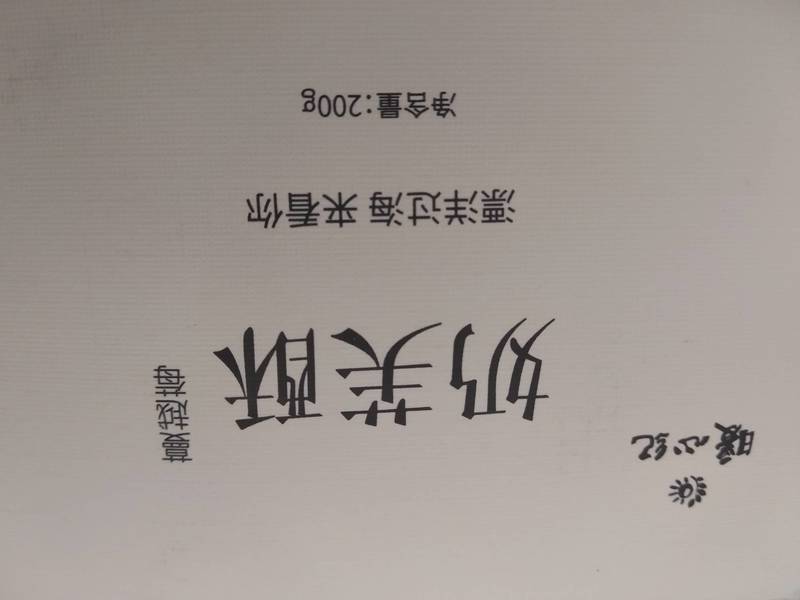 暖心纪
奶芙酥
蔓越莓
漂洋过海 来看你
净含量:200g